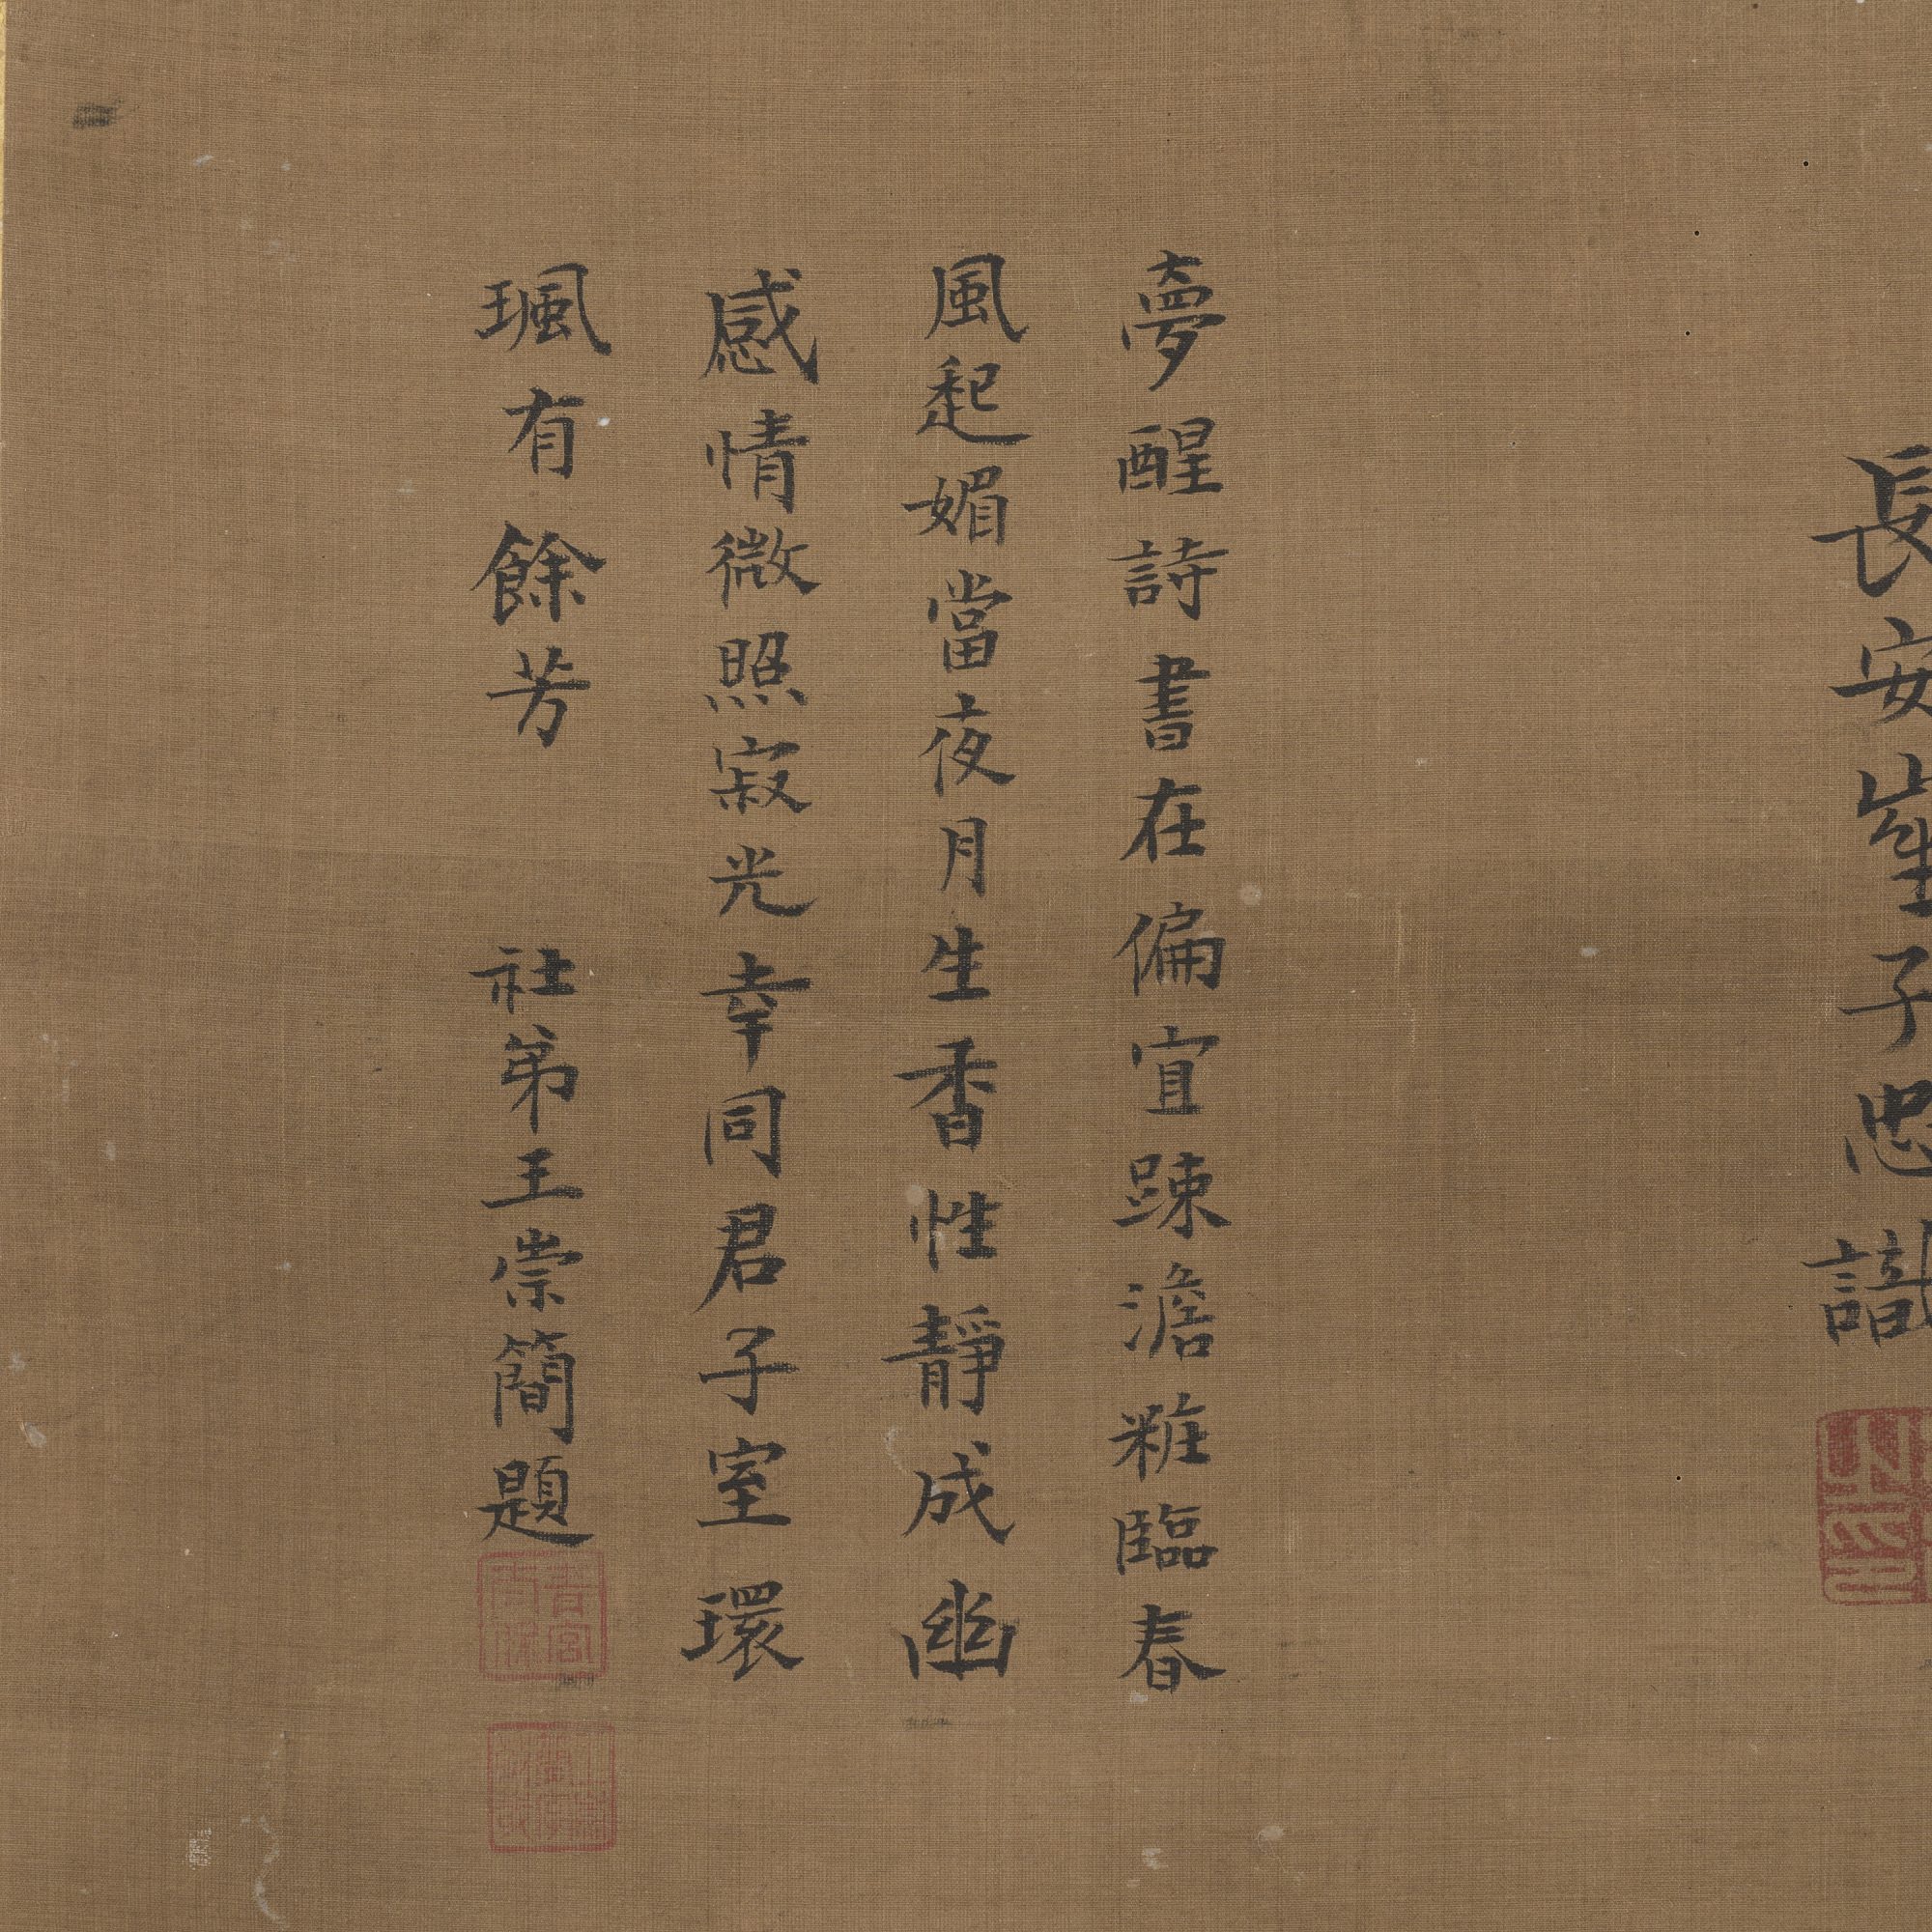 長安崔子忠識
夢醒詩書在偏宜踈澹粧臨春
風起媚當夜月生香性靜成幽
感情微照寂光幸同君子室環
珮有餘芳　社弟王崇簡題